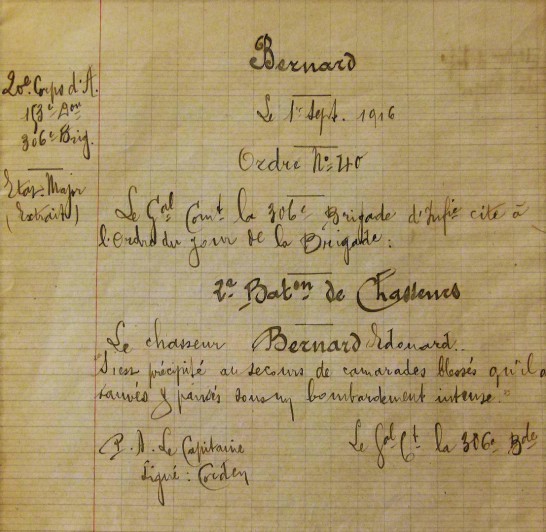 Bernard
20e. Corps d'A.
153e Don
306e Brig.
Etat-Major
(Extrait)
Le 1er Sept. 1916
Ordre No 40
Le Gal Comt la 306e Brigade d'Infie cite à
l'Ordre du jour de la Brigade:
2e Baton de Chasseurs
Le chasseur Bernard Edouard.
"S'est précipité au secours de camarades blessés qu'il a
sauvés & pansés sous un bombardement intense."
P. A. Le Capitaine
Signé:
Le Gal Ct la 306e Bde